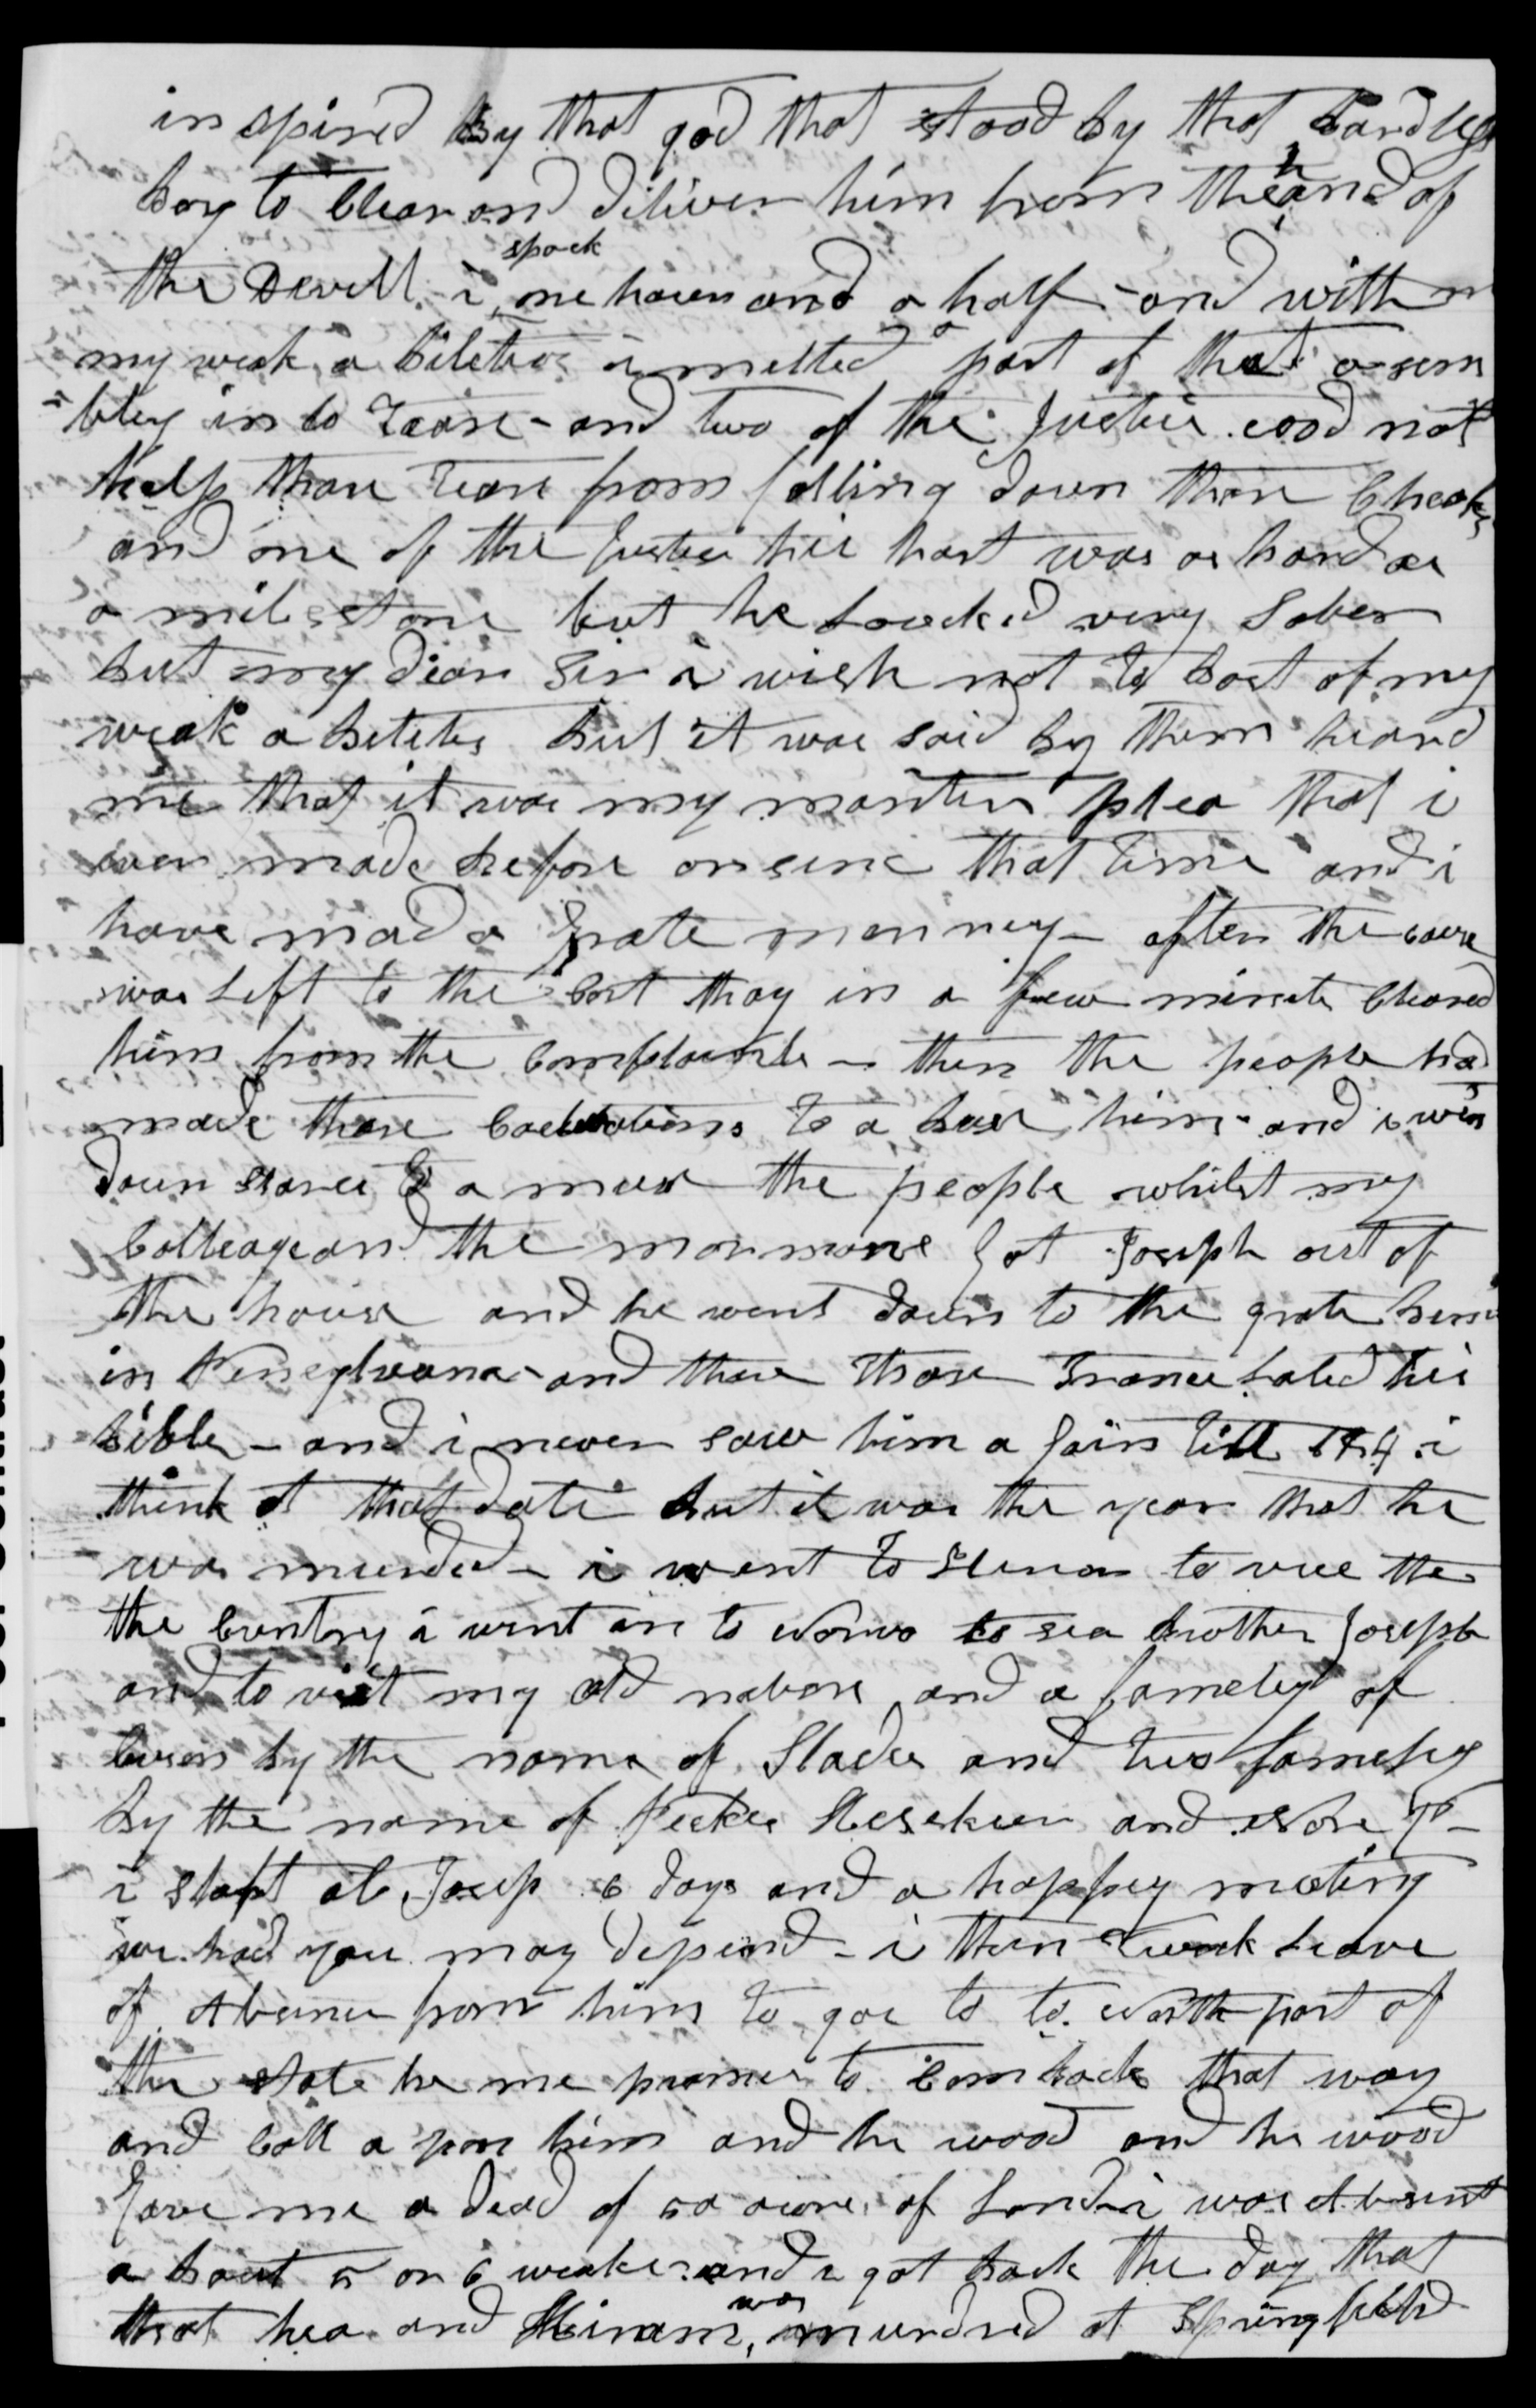 inspired by that god that stood by that
boy to Clear and diliver him from the hand of
the Devell. i spock one houer and a half - and with
my weak a biletes i melted a part of that a sem
=bley in to Teare - and two of the Justic cood not
help thare Teare from falling down thare Cheaks
and one of the Justice his hart was as hard as
a mile stone but he Loocked very Sober
but my dear Sir i wish not to bost of my
weak a biletes but it was said by them heard
me that it was my master plea that i
ever made before or sinc that time and i
have mad a grate menney - after the cause
was Left to the Cort thay in a few minets Cleared
him from the Complaints - then the people had
made thare to a buse him - and i went
down stares to a muse the people whilst my
Colleage and the mormons Got Joseph out of
the house and he went down to the grate
in Pensylvana - and thare Those Trance Lated his
bible - and i never saw him a Gain till i
think at that date but it was the year that he
was murded - i went to to vue the
the Cuntry i went in to to see brother Joseph
and to visit my old nabors and a fameley of
by the name of Slades and two fameleys
by the name of and
i stopt at Josep 6 days and a happy meeting
we had you may depend - i then Twock Leave
of Absence from him to goe to to North part of
the state he me promis to Com back that way
and Call a pon him and he wood and he wood
Gave me a dead of of Land - i was Absent
a bout 5 or 6 weaks and i got back the day that
that hea and Hiram, was murdred at Springfield